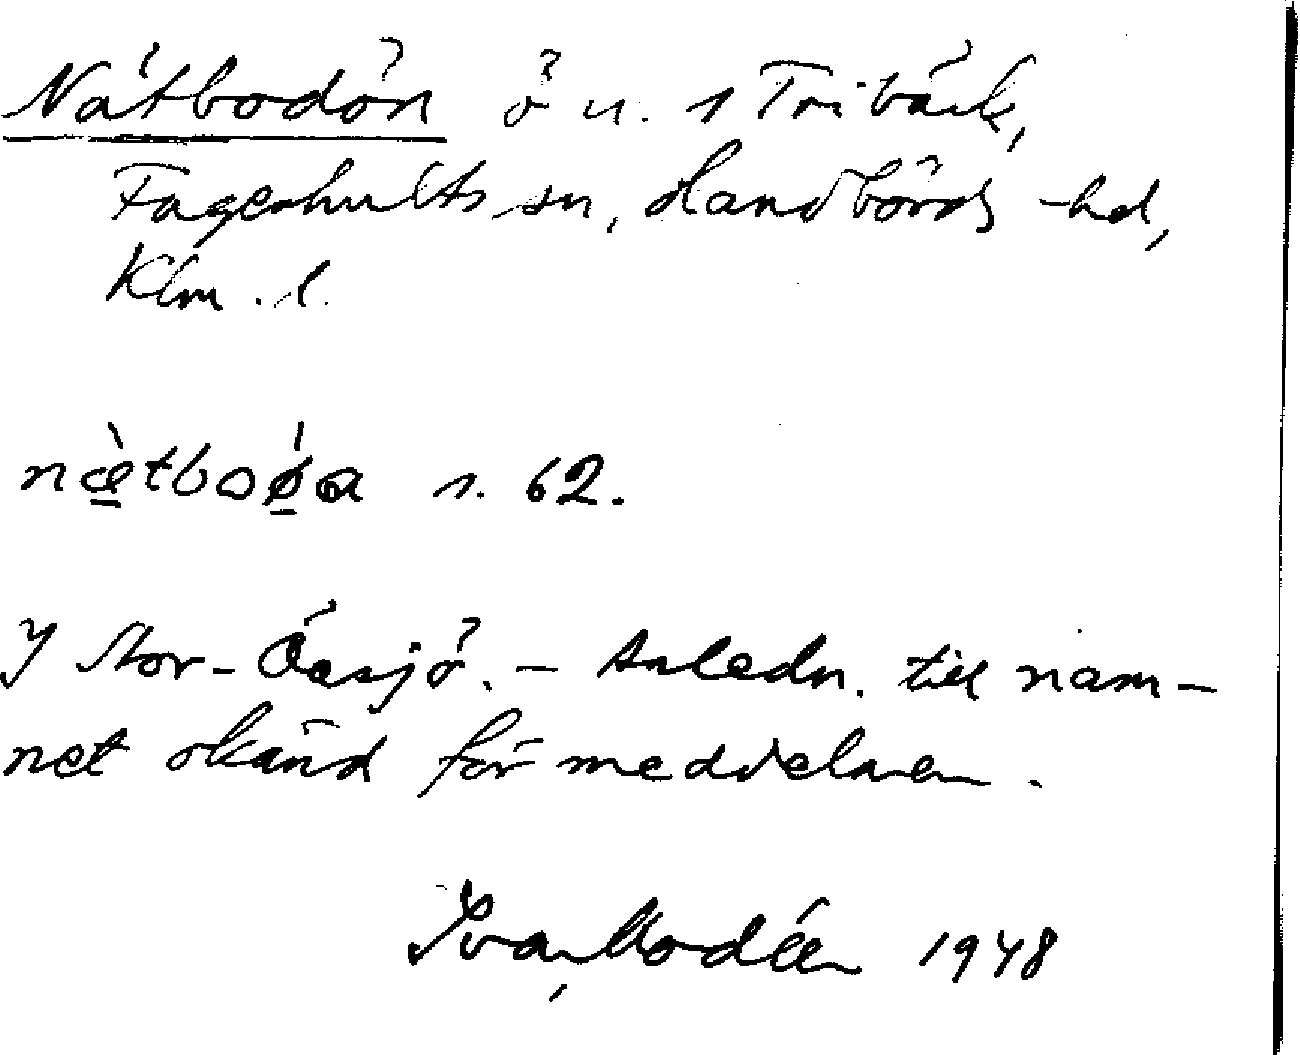 Nätbodön ö u. 1 Tribäck,
Fagerhults sn, Handbörds hd,
Klm. l.
næ̀tboǿa s. 62.
I Stor-Öasjö. – Anledn. till nam-
net okänd för meddelaren.
Ivar Modéer 1948